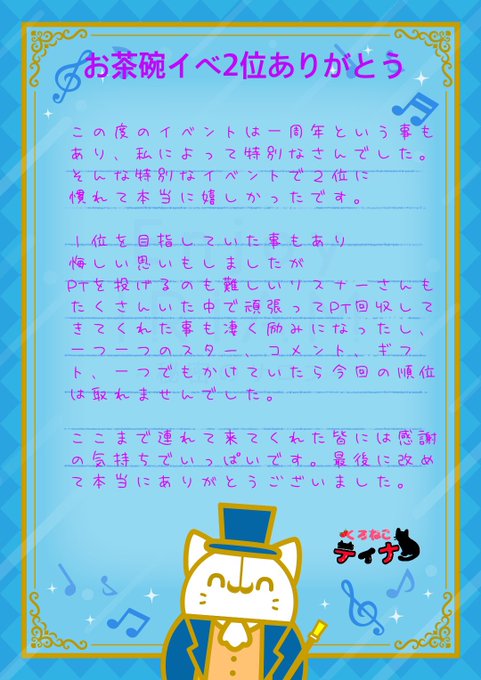 お茶碗イベ2位ありがとう
この度のイベントは一周年という事も
あり、私によって特別なさんでした。
そんな特別なイベントで２位に
慣れて本当に嬉しかったです。
１位を目指していた事もあり
悔しい思いもしましたが
PTを投げるのも難しいリスナーさんも
たくさんいた中で頑張ってPT回収して
きてくれた事も凄く励みになったし、
一つ一つのスター、コメント、ギフ
ト、一つでもかけていたら今回の順位
は取れませんでした。
ここまで連れて来てくれた皆には感謝
の気持ちでいっぱいです。最後に改め
て本当にありがとうございました。
くろねこ
ティナ